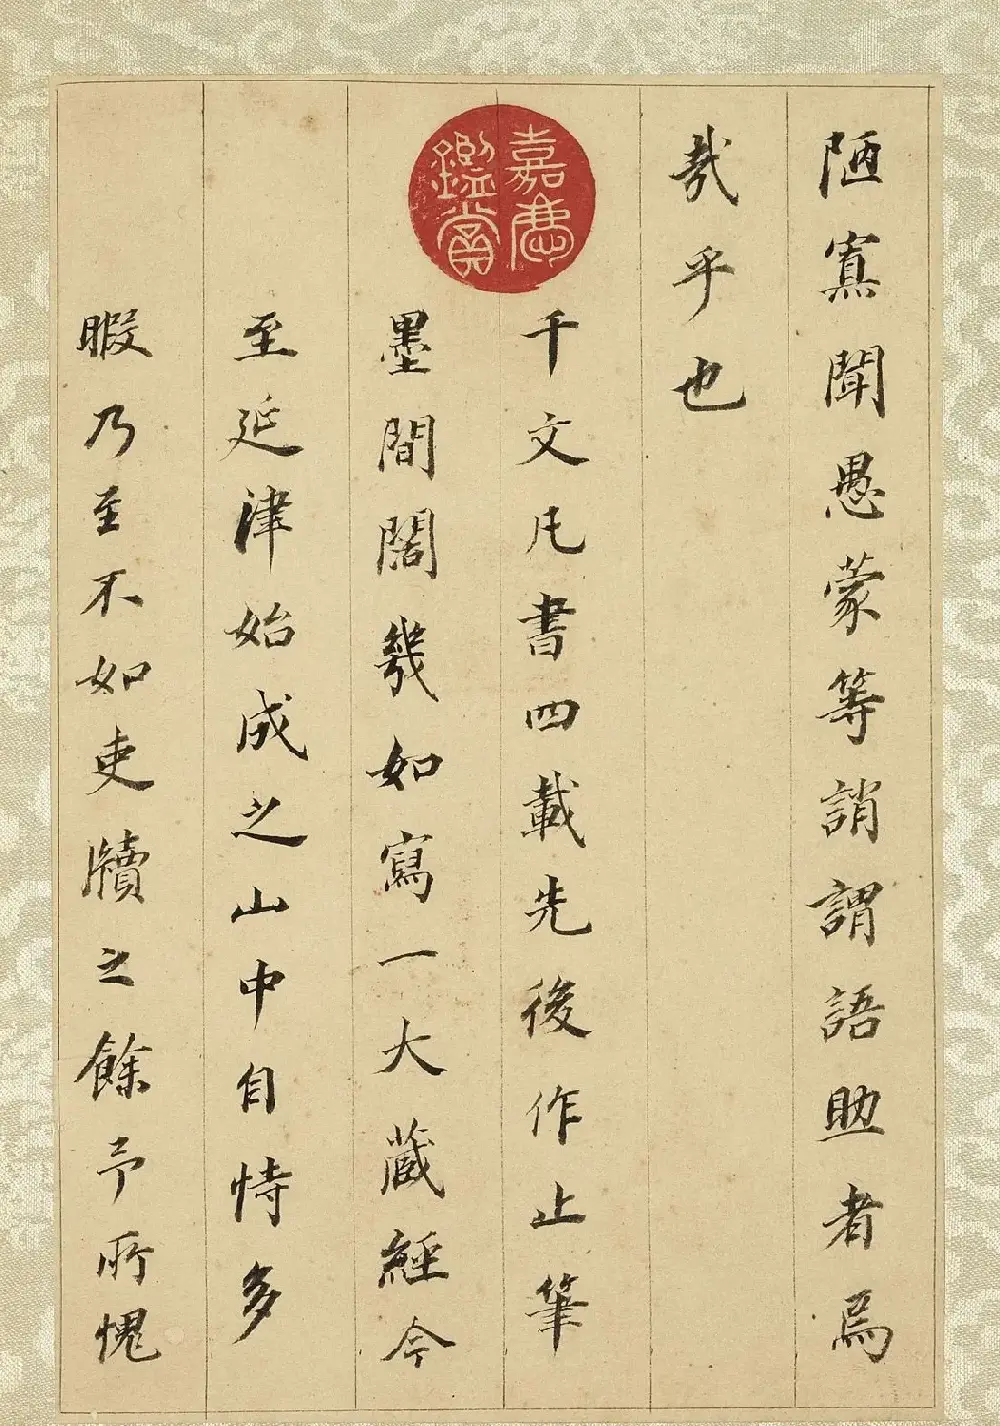 陋寡聞愚蒙等誚謂語助者焉
哉乎也
千文凡書四載先後作止筆
墨間闊幾如寫一大藏經今
至延津始成之山中自恃多
暇乃至不如吏牘之餘予所愧
嘉慶鑑賞